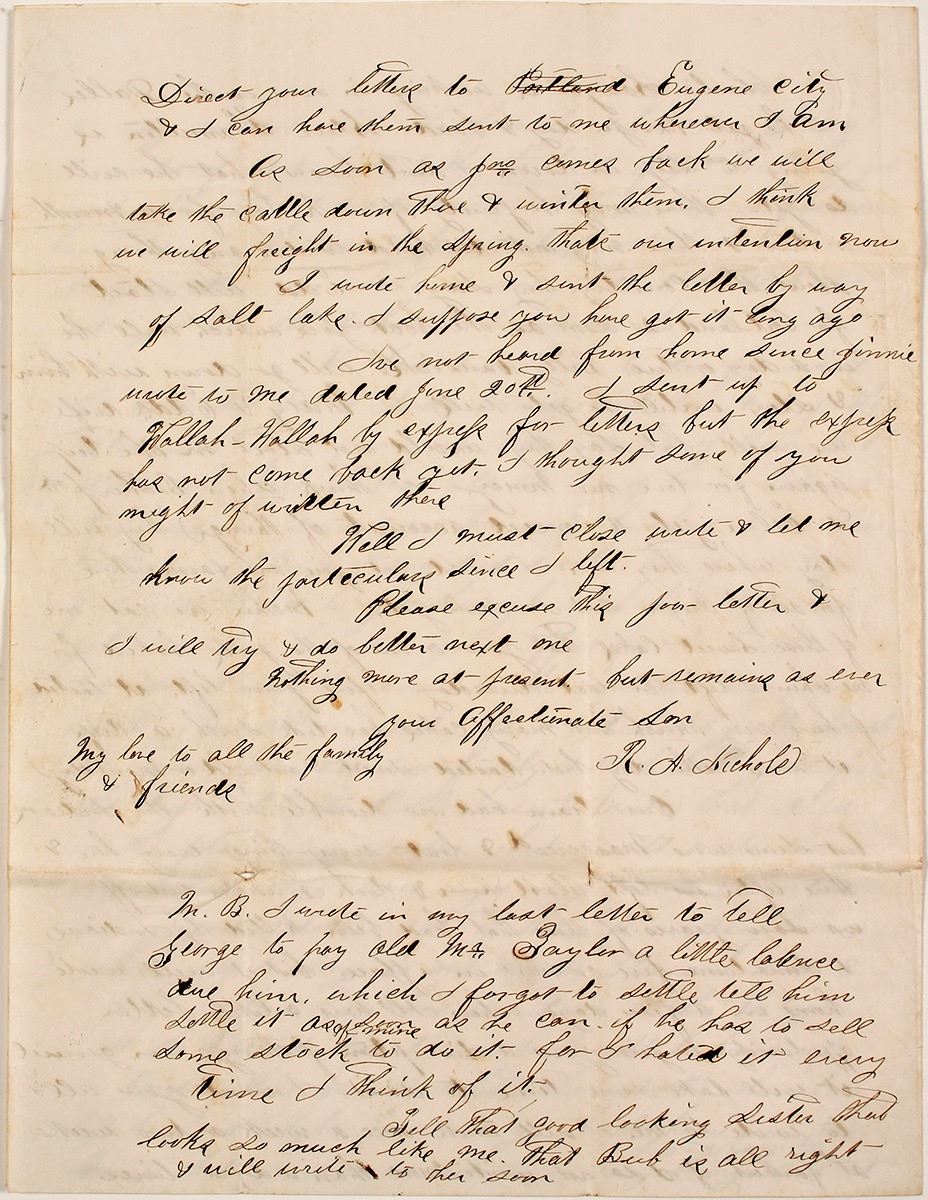 Direct your letters to Portland Eugene City
& I can have them sent to me wherever I am
As soon as Jno comes back we will
take the cattle down there & winter them. I think
we will freight in the spring. thats our intention now
I wrote home & sent the letter by way
of Salt lake. I suppose you have got it long ago
Ive not heard from home since Jinnie
wrote to me dated June 20th. I sent up to
Wallah-Wallah by express for letters but the express
has not come back yet. I thought some of you
might of written there
Well I must close write & let me
know the particulars since I left.
Please excuse this poor letter &
I will try & do better next one
Nothing more at present. but remains as ever
your Affectionate Son
My love to all the family
R. A. Nichols
& friends
N. B. I wrote in my last letter to Tell
George to pay Old Mr. Taylor a little balence
due him, which I forgot to settle tell him
settle it as soon as he can. if he has to sell
of mine
some stock to do it. for I hated it every
time I think of it.
Tell that good looking sister that
looks so much like me. that Bub is all right
& will write to her soon